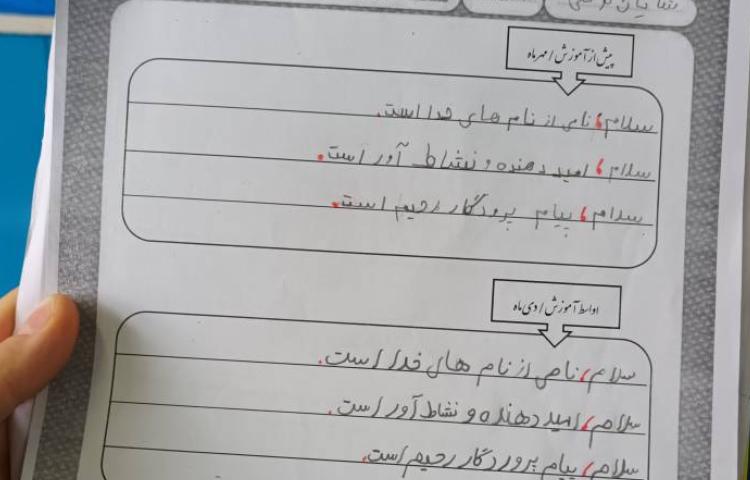 پیش از آموزش / مهرماه
سلام، نامی از نام های خدا است.
سلام، امید دهنده و نشاط آور است.
سلام، پیام پرودگار رحیم است.
اواسط آموزش / دی ماه
سلام، نامی از نام های خدا است.
سلام، امید دهنده و نشاط آور است.
سلام، پیام پروردگار رحیم است.